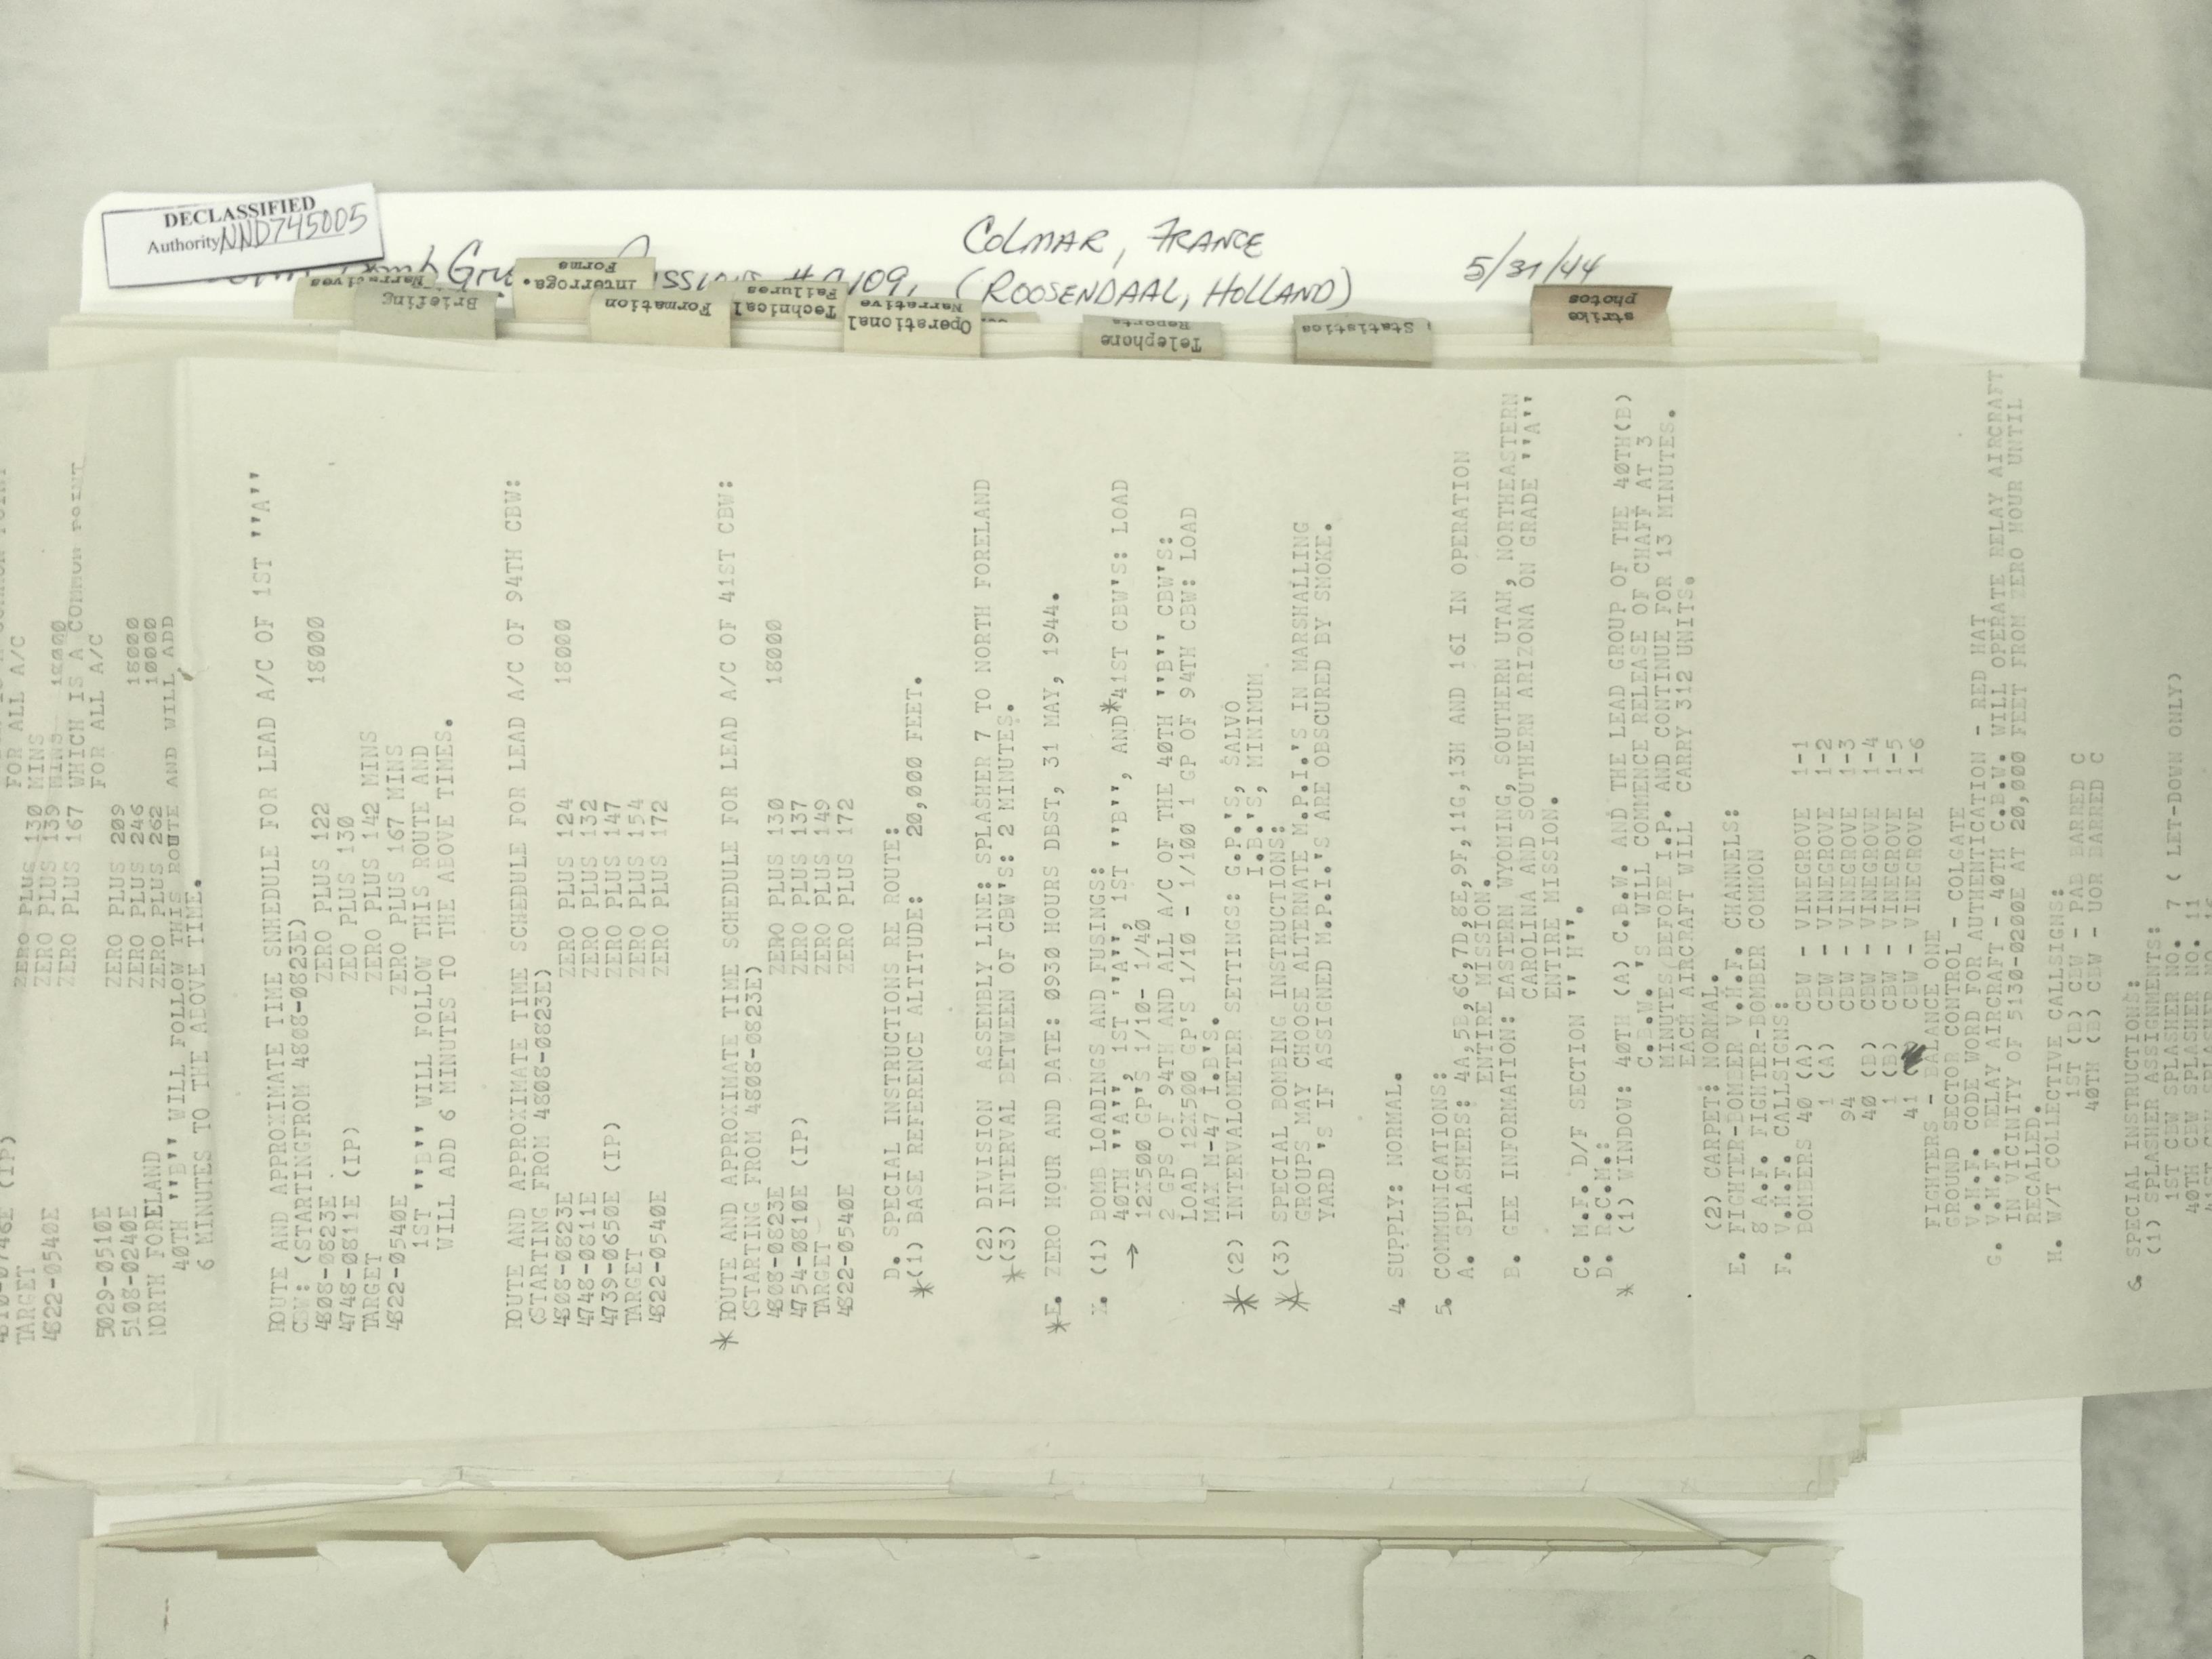 DECLASSIFIED
Authority NND745005
COLMAR, FRANCE
(ROOSENDAAL, HOLLAND)
5/31/44
Narratives
Briefing
Interroga.
Forms
Formation
Technical
Failures
Operational
Narrative
Telephone
Reports
Statistics
strike
photos
TARGET
4822-0540E
5029-0510E
5108-0240E
NORTH FORELAND
FOR ALL A/C
ZERO PLUS 130 MINS
ZERO PLUS 139 MINS
ZERO PLUS 167 WHICH IS A COMMON POINT
FOR ALL A/C
ZERO PLUS 209
ZERO PLUS 246 18000
ZERO PLUS 262 10000
40TH ''B'' WILL FOLLOW THIS ROUTE AND WILL ADD
6 MINUTES TO THE ABOVE TIME.
ROUTE AND APPROXIMATE TIME SNHEDULE FOR LEAD A/C OF 1ST ''A''
CBW: (STARTINGFROM 4808-0823E)
4808-0823E ZERO PLUS 122 18000
4748-0811E (IP) ZEO PLUS 130
TARGET ZERO PLUS 142 MINS
4822-0540E ZERO PLUS 167 MINS
1ST ''B'' WILL FOLLOW THIS ROUTE AND
WILL ADD 6 MINUTES TO THE ABOVE TIMES.
ROUTE AND APPROXIMATE TIME SCHEDULE FOR LEAD A/C OF 94TH CBW:
(STARTING FROM 4808-0823E)
4808-0823E ZERO PLUS 124 18000
4748-0811E ZERO PLUS 132
4739-0650E (IP) ZERO PLUS 147
TARGET ZERO PLUS 154
4822-0540E ZERO PLUS 172
* ROUTE AND APPROXIMATE TIME SCHEDULE FOR LEAD A/C OF 41ST CBW:
(STARTING FROM 4808-0823E)
4808-0823E ZERO PLUS 130 18000
4754-0810E (IP) ZERO PLUS 137
TARGET ZERO PLUS 149
4822-0540E ZERO PLUS 172
D. SPECIAL INSTRUCTIONS RE ROUTE:
*(1) BASE REFERENCE ALTITUDE: 20,000 FEET.
(2) DIVISION ASSEMBLY LINE: SPLASHER 7 TO NORTH FORELAND
*(3) INTERVAL BETWEEN OF CBW'S: 2 MINUTES.
*E. ZERO HOUR AND DATE: 0930 HOURS DBST, 31 MAY, 1944.
X. (1) BOMB LOADINGS AND FUSINGS:
→ 40TH ''A'', 1ST ''A'', 1ST ''B'', AND *41ST CBW'S: LOAD
12X500 GP'S 1/10- 1/40
2 GPS OF 94TH AND ALL A/C OF THE 40TH ''B'' CBW'S:
LOAD 12X500 GP'S 1/10 - 1/100 1 GP OF 94TH CBW: LOAD
MAX M-47 I.B'S.
* (2) INTERVALOMETER SETTINGS: G.P.'S, SALVO
I.B.'S, MINIMUM
* (3) SPECIAL BOMBING INSTRUCTIONS:
GROUPS MAY CHOOSE ALTERNATE M.P.I.'S IN MARSHALLING
YARD 'S IF ASSIGNED M.P.I.'S ARE OBSCURED BY SMOKE.
4. SUPPLY: NORMAL.
5. COMMUNICATIONS:
A. SPLASHERS: 4A,5B,6C,7D,8E,9F,11G,13H AND 16I IN OPERATION
ENTIRE MISSION.
B. GEE INFORMATION: EASTERN WYOMING, SOUTHERN UTAH, NORTHEASTERN
CAROLINA AND SOUTHERN ARIZONA ON GRADE ''A''
ENTIRE MISSION.
C. M.F. D/F SECTION ''H''.
D. R.C.M.:
* (1) WINDOW: 40TH (A) C.B.W. AND THE LEAD GROUP OF THE 40TH(B)
C.B.W.'S WILL COMMENCE RELEASE OF CHAFF AT 3
MINUTES BEFORE I.P. AND CONTINUE FOR 13 MINUTES.
EACH AIRCRAFT WILL CARRY 312 UNITS.
(2) CARPET: NORMAL.
E. FIGHTER-BOMBER V.H.F. CHANNELS:
8 A.F. FIGHTER-BOMBER COMMON
F. V.H.F. CALLSIGNS:
BOMBERS 40 (A) CBW - VINEGROVE 1-1
1 (A) CBW - VINEGROVE 1-2
94 CBW - VINEGROVE 1-3
40 (B) CBW - VINEGROVE 1-4
1 (B) CBW - VINEGROVE 1-5
41 CBW - VINEGROVE 1-6
FIGHTERS - BALANCE ONE
GROUND SECTOR CONTROL - COLGATE
V.H.F. CODE WORD FOR AUTHENTICATION - RED HAT
G. V.H.F. RELAY AIRCRAFT - 40TH C.B.W. WILL OPERATE RELAY AIRCRAFT
IN VICINITY OF 5130-0200E AT 20,000 FEET FROM ZERO HOUR UNTIL
RECALLED.
H. W/T COLLECTIVE CALLSIGNS:
1ST (B) CBW - PAB BARRED C
40TH (B) CBW - UOR BARRED C
6. SPECIAL INSTRUCTIONS:
(1) SPLASHER ASSIGNMENTS:
1ST CBW SPLASHER NO. 7 ( LET-DOWN ONLY)
40TH CBW SPLASHER NO. 11